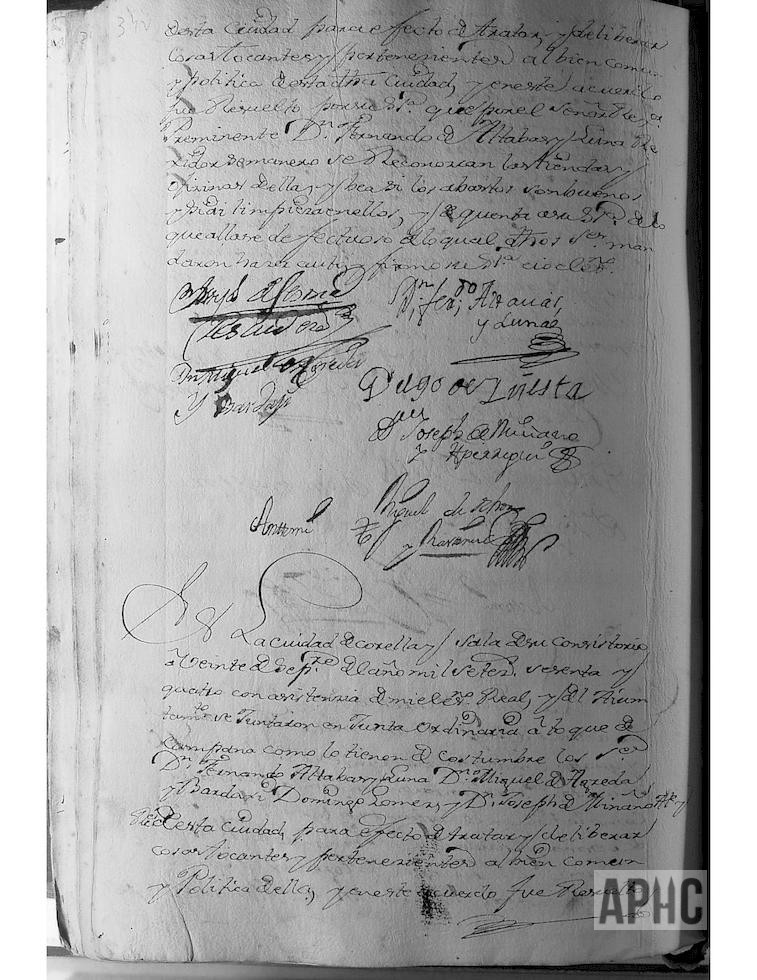 desta Ciudad para efecto de tratar, y deliberar
cosas tocantes y pertenecientes al bien comun
y politica desta dha Ciudad, y eneste acuerdo
fue Resuelto por su Sa. que por el señor Rex.or
Preminente Dn. Fernando de Attabas y Luna Re
xidor semanero se Reconozcan las tiendas y
oficinas della y bea si los abastos son buenos
y si ai limpieza enellos, y de quenta a su Sa. de lo
que allare defectuoso de lo qual dhos Ses. man
daron hazer auto y firmo su Sa. e io el Es.
Escudero
Dn. fer.do Attauas,
y Luna
Dn Miguel
y Bardaji
Diego de Iñesta
Dn Joseph de Miñano
y
Antemi
Miguel de
y
En La ciudad de corella y sala de su consistorio
a Veinte de Sep.re del año mil setez. sesenta y
quatro con asistenzia de mi el es. Real, y del Aium
tam.to se Juntaron en Junta ordinaria a toque de
campana como lo tienen de costumbre los Ses.
Dn. Fernando Attabas y Luna Dn. Miguel de Agreda
y Bardaxi Domingo Gomez, y Dn. Joseph de Miñano
desta Ciudad, para efecto de tratar y deliberar
cosas tocantes y pertenecientes al bien comun
y Politica della, y eneste acuerdo fue Resuelto
APHC